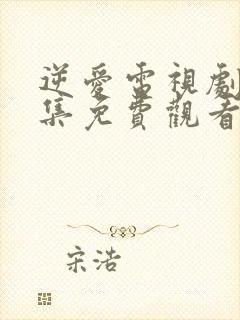 逆愛電視劇
集免費觀看
宋浩